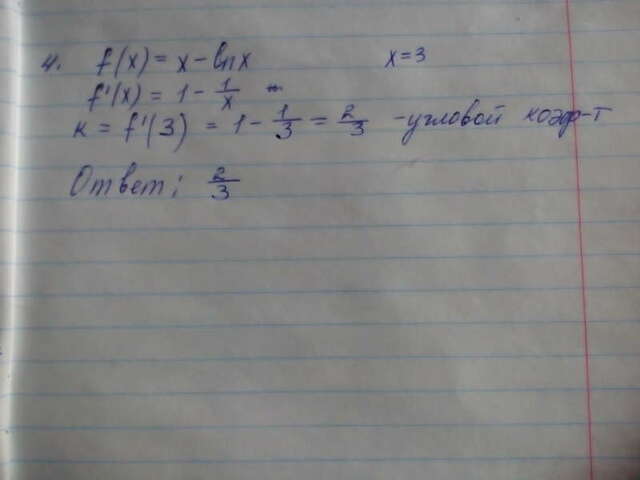 4. f(x) = x - ln x x = 3
f'(x) = 1 - 1/x
к = f'(3) = 1 - 1/3 = 2/3 - угловой коэф-т
Ответ: 2/3